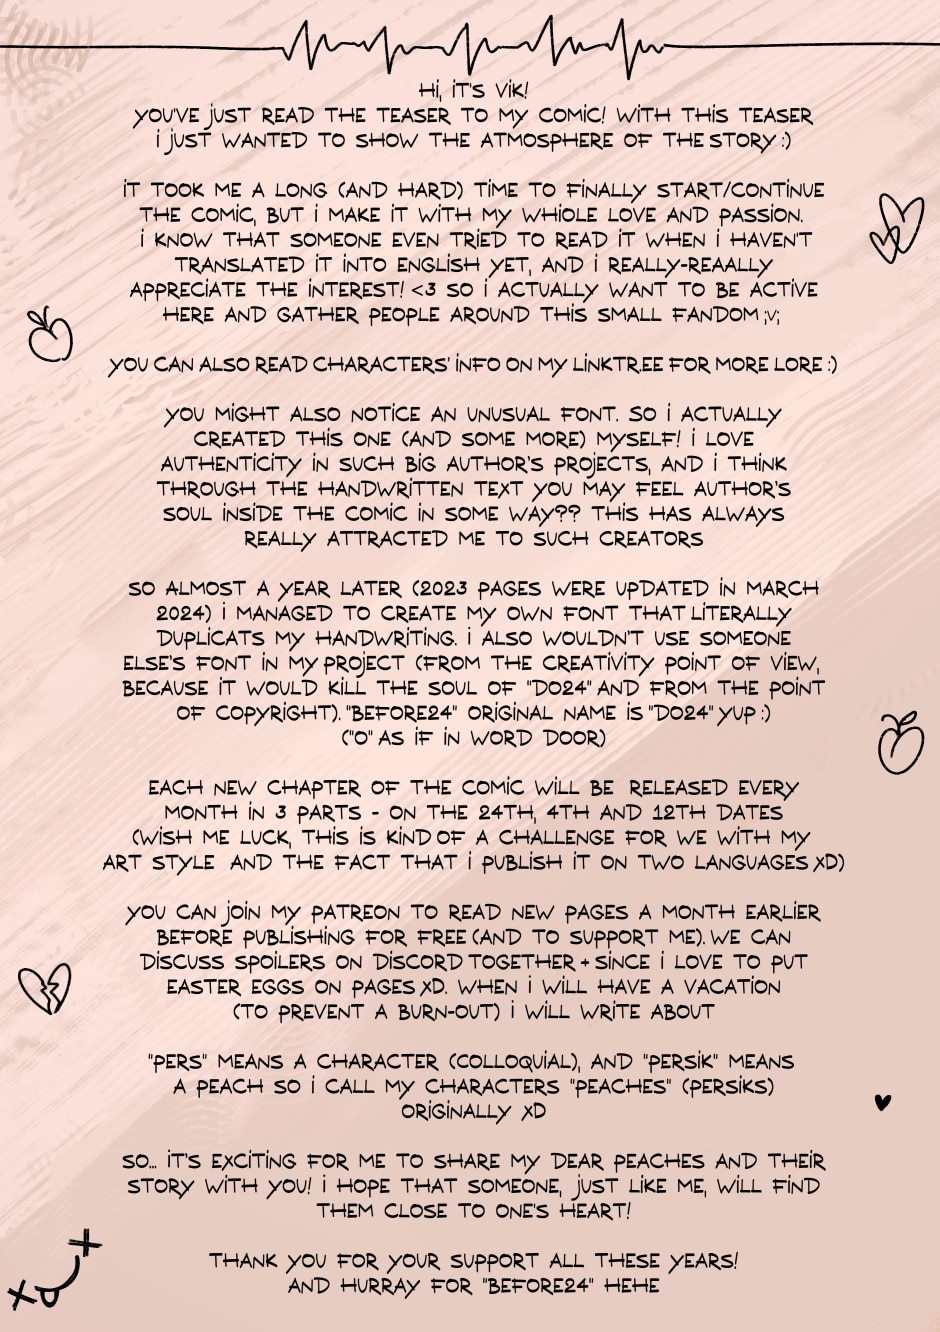 Hi, iT'S ViK!
YOU'VE jUST READ THE TEASER TO MY COMiC! WiTH THiS TEASER
i jUST WANTED TO SHOW THE ATMOSPHERE OF THE STORY :)
iT TOOK ME A LONG (AND HARD) TiME TO FiNALLY START/CONTiNUE
THE COMiC, BUT i MAKE iT WiTH MY WHiOLE LOVE AND PASSiON.
i KNOW THAT SOMEONE EVEN TRiED TO READ iT WHEN i HAVEN'T
TRANSLATED iT iNTO ENGLiSH YET, AND i REALLY-REAALLY
APPRECiATE THE iNTEREST! <3 SO i ACTUALLY WANT TO BE ACTiVE
HERE AND GATHER PEOPLE AROUND THiS SMALL FANDOM ;v;
YOU CAN ALSO READ CHARACTERS' iNFO ON MY LiNKTR.EE FOR MORE LORE :)
YOU MiGHT ALSO NOTiCE AN UNUSUAL FONT. SO i ACTUALLY
CREATED THiS ONE (AND SOME MORE) MYSELF! i LOVE
AUTHENTiCiTY iN SUCH BiG AUTHOR'S PROjECTS, AND i THiNK
THROUGH THE HANDWRiTTEN TEXT YOU MAY FEEL AUTHOR'S
SOUL iNSiDE THE COMiC iN SOME WAY?? THiS HAS ALWAYS
REALLY ATTRACTED ME TO SUCH CREATORS
SO ALMOST A YEAR LATER (2023 PAGES WERE UPDATED iN MARCH
2024) i MANAGED TO CREATE MY OWN FONT THAT LiTERALLY
DUPLiCATS MY HANDWRiTiNG. i ALSO WOULDN'T USE SOMEONE
ELSE'S FONT iN MY PROjECT (FROM THE CREATiViTY POiNT OF ViEW,
BECAUSE iT WOULD KiLL THE SOUL OF "DO24" AND FROM THE POiNT
OF COPYRiGHT). "BEFORE24" ORiGiNAL NAME iS "DO24" YUP :)
("O" AS IF IN WORD DOOR)
EACH NEW CHAPTER OF THE COMiC WiLL BE RELEASED EVERY
MONTH iN 3 PARTS - ON THE 24TH, 4TH AND 12TH DATES
(WiSH ME LUCK, THiS iS KiND OF A CHALLENGE FOR WE WiTH MY
ART STYLE AND THE FACT THAT i PUBLiSH iT ON TWO LANGUAGES XD)
YOU CAN jOiN MY PATREON TO READ NEW PAGES A MONTH EARLiER
BEFORE PUBLiSHiNG FOR FREE (AND TO SUPPORT ME). WE CAN
DiSCUSS SPOiLERS ON DiSCORD TOGETHER + SiNCE i LOVE TO PUT
EASTER EGGS ON PAGES XD. WHEN i WiLL HAVE A VACATiON
(TO PREVENT A BURN-OUT) i WiLL WRiTE ABOUT
"PERS" MEANS A CHARACTER (COLLOQUiAL), AND "PERSiK" MEANS
A PEACH SO i CALL MY CHARACTERS "PEACHES" (PERSiKS)
ORiGiNALLY XD
SO... iT'S EXCiTiNG FOR ME TO SHARE MY DEAR PEACHES AND THEiR
STORY WiTH YOU! i HOPE THAT SOMEONE, jUST LiKE ME, WiLL FiND
THEM CLOSE TO ONE'S HEART!
THANK YOU FOR YOUR SUPPORT ALL THESE YEARS!
AND HURRAY FOR "BEFORE24" HEHE